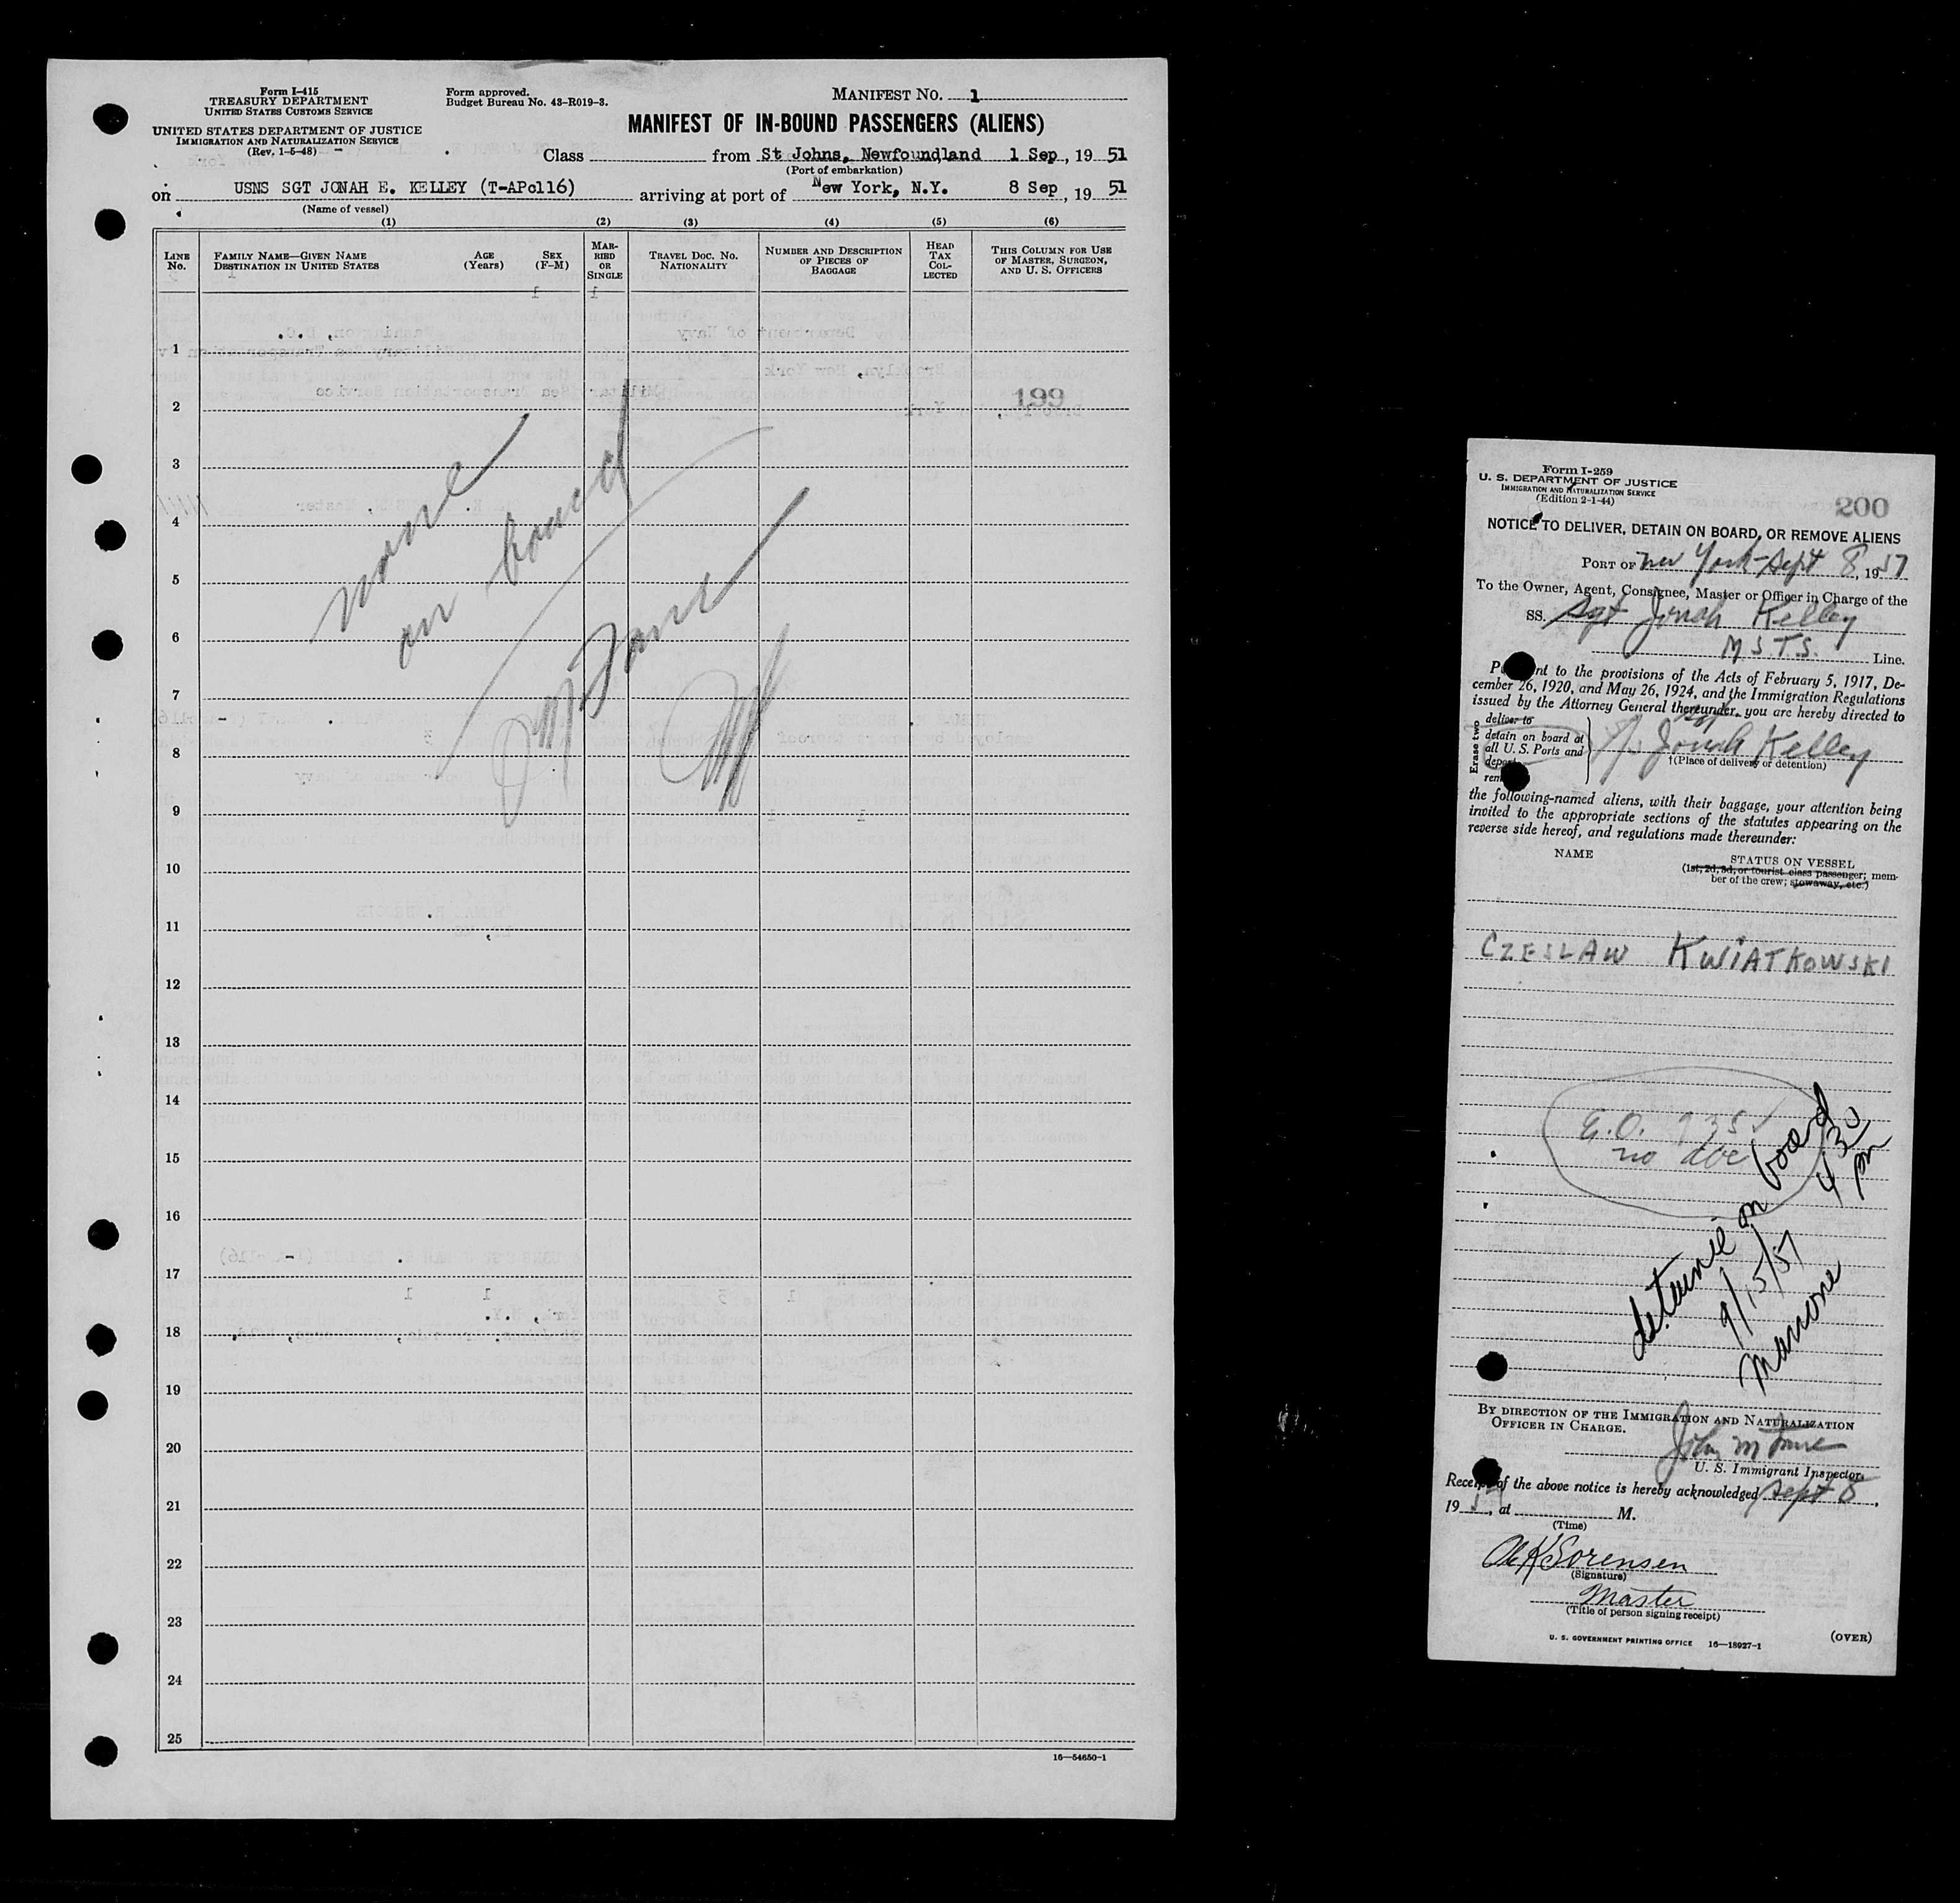 Form I-415
TREASURY DEPARTMENT
UNITED STATES CUSTOMS SERVICE
UNITED STATES DEPARTMENT OF JUSTICE
IMMIGRATION AND NATURALIZATION SERVICE
(Rev. 1-5-48)
Form approved.
Budget Bureau No. 43-R019-3.
MANIFEST NO. 1
MANIFEST OF IN-BOUND PASSENGERS (ALIENS)
Class from St Johns, Newfoundland 1 Sep, 19 51
(Port of embarkation)
on USNS SGT JONAH E. KELLEY (T-APc116) arriving at port of New York, N.Y. 8 Sep, 19 51
(Name of vessel)
(1) (2) (3) (4) (5) (6)
LINE No.
FAMILY NAME—GIVEN NAME
DESTINATION IN UNITED STATES
AGE (Years)
SEX (F-M)
MARRIED OR SINGLE
TRAVEL DOC. NO. NATIONALITY
NUMBER AND DESCRIPTION OF PIECES OF BAGGAGE
HEAD TAX COLLECTED
THIS COLUMN FOR USE OF MASTER, SURGEON, AND U. S. OFFICERS
1
2
199
3
4
5
6
7
8
9
10
11
12
13
14
15
16
17
18
19
20
21
22
23
24
25
none
on board
16—54650-1
Form I-259
U. S. DEPARTMENT OF JUSTICE
IMMIGRATION AND NATURALIZATION SERVICE
(Edition 2-1-44)
200
NOTICE TO DELIVER, DETAIN ON BOARD, OR REMOVE ALIENS
PORT OF New York Sept 8, 1951
To the Owner, Agent, Consignee, Master or Officer in Charge of the
SS. Sgt Jonah Kelley
M.S.T.S. Line.
Pursuant to the provisions of the Acts of February 5, 1917, De-
cember 26, 1920, and May 26, 1924, and the Immigration Regulations
issued by the Attorney General thereunder, you are hereby directed to
Erase two
deliver to
detain on board at
all U. S. Ports and
deport
Sgt Jonah Kelley
†(Place of delivery or detention)
the following-named aliens, with their baggage, your attention being
invited to the appropriate sections of the statutes appearing on the
reverse side hereof, and regulations made thereunder:
NAME
STATUS ON VESSEL
(1st, 2d, 3d, or tourist class passenger; mem-
ber of the crew; stowaway, etc.)
CZESLAW KWIATKOWSKI
E.O.
no doc
detained on board
9/15/51 4 30 pm
Manone
BY DIRECTION OF THE IMMIGRATION AND NATURALIZATION
OFFICER IN CHARGE.
John M
U. S. Immigrant Inspector.
Receipt of the above notice is hereby acknowledged Sept 8,
1951, at M.
(Time)
Sorensen
(Signature)
Master
(Title of person signing receipt)
U. S. GOVERNMENT PRINTING OFFICE 16—18927-1
(OVER)